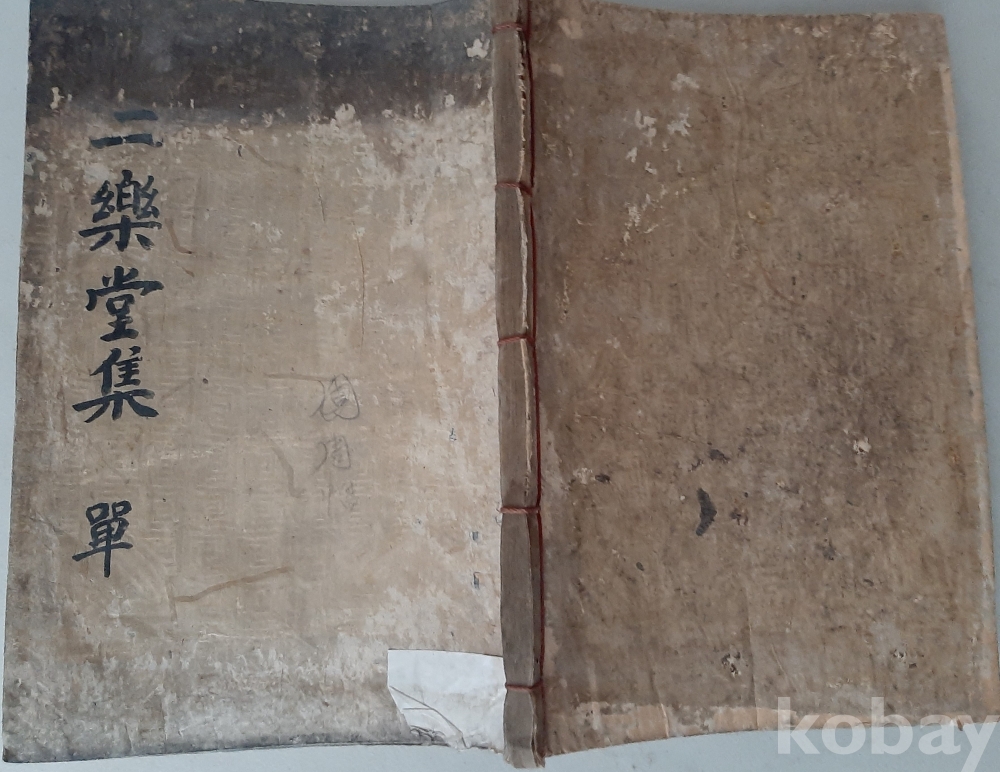 二樂堂集 單
kobay